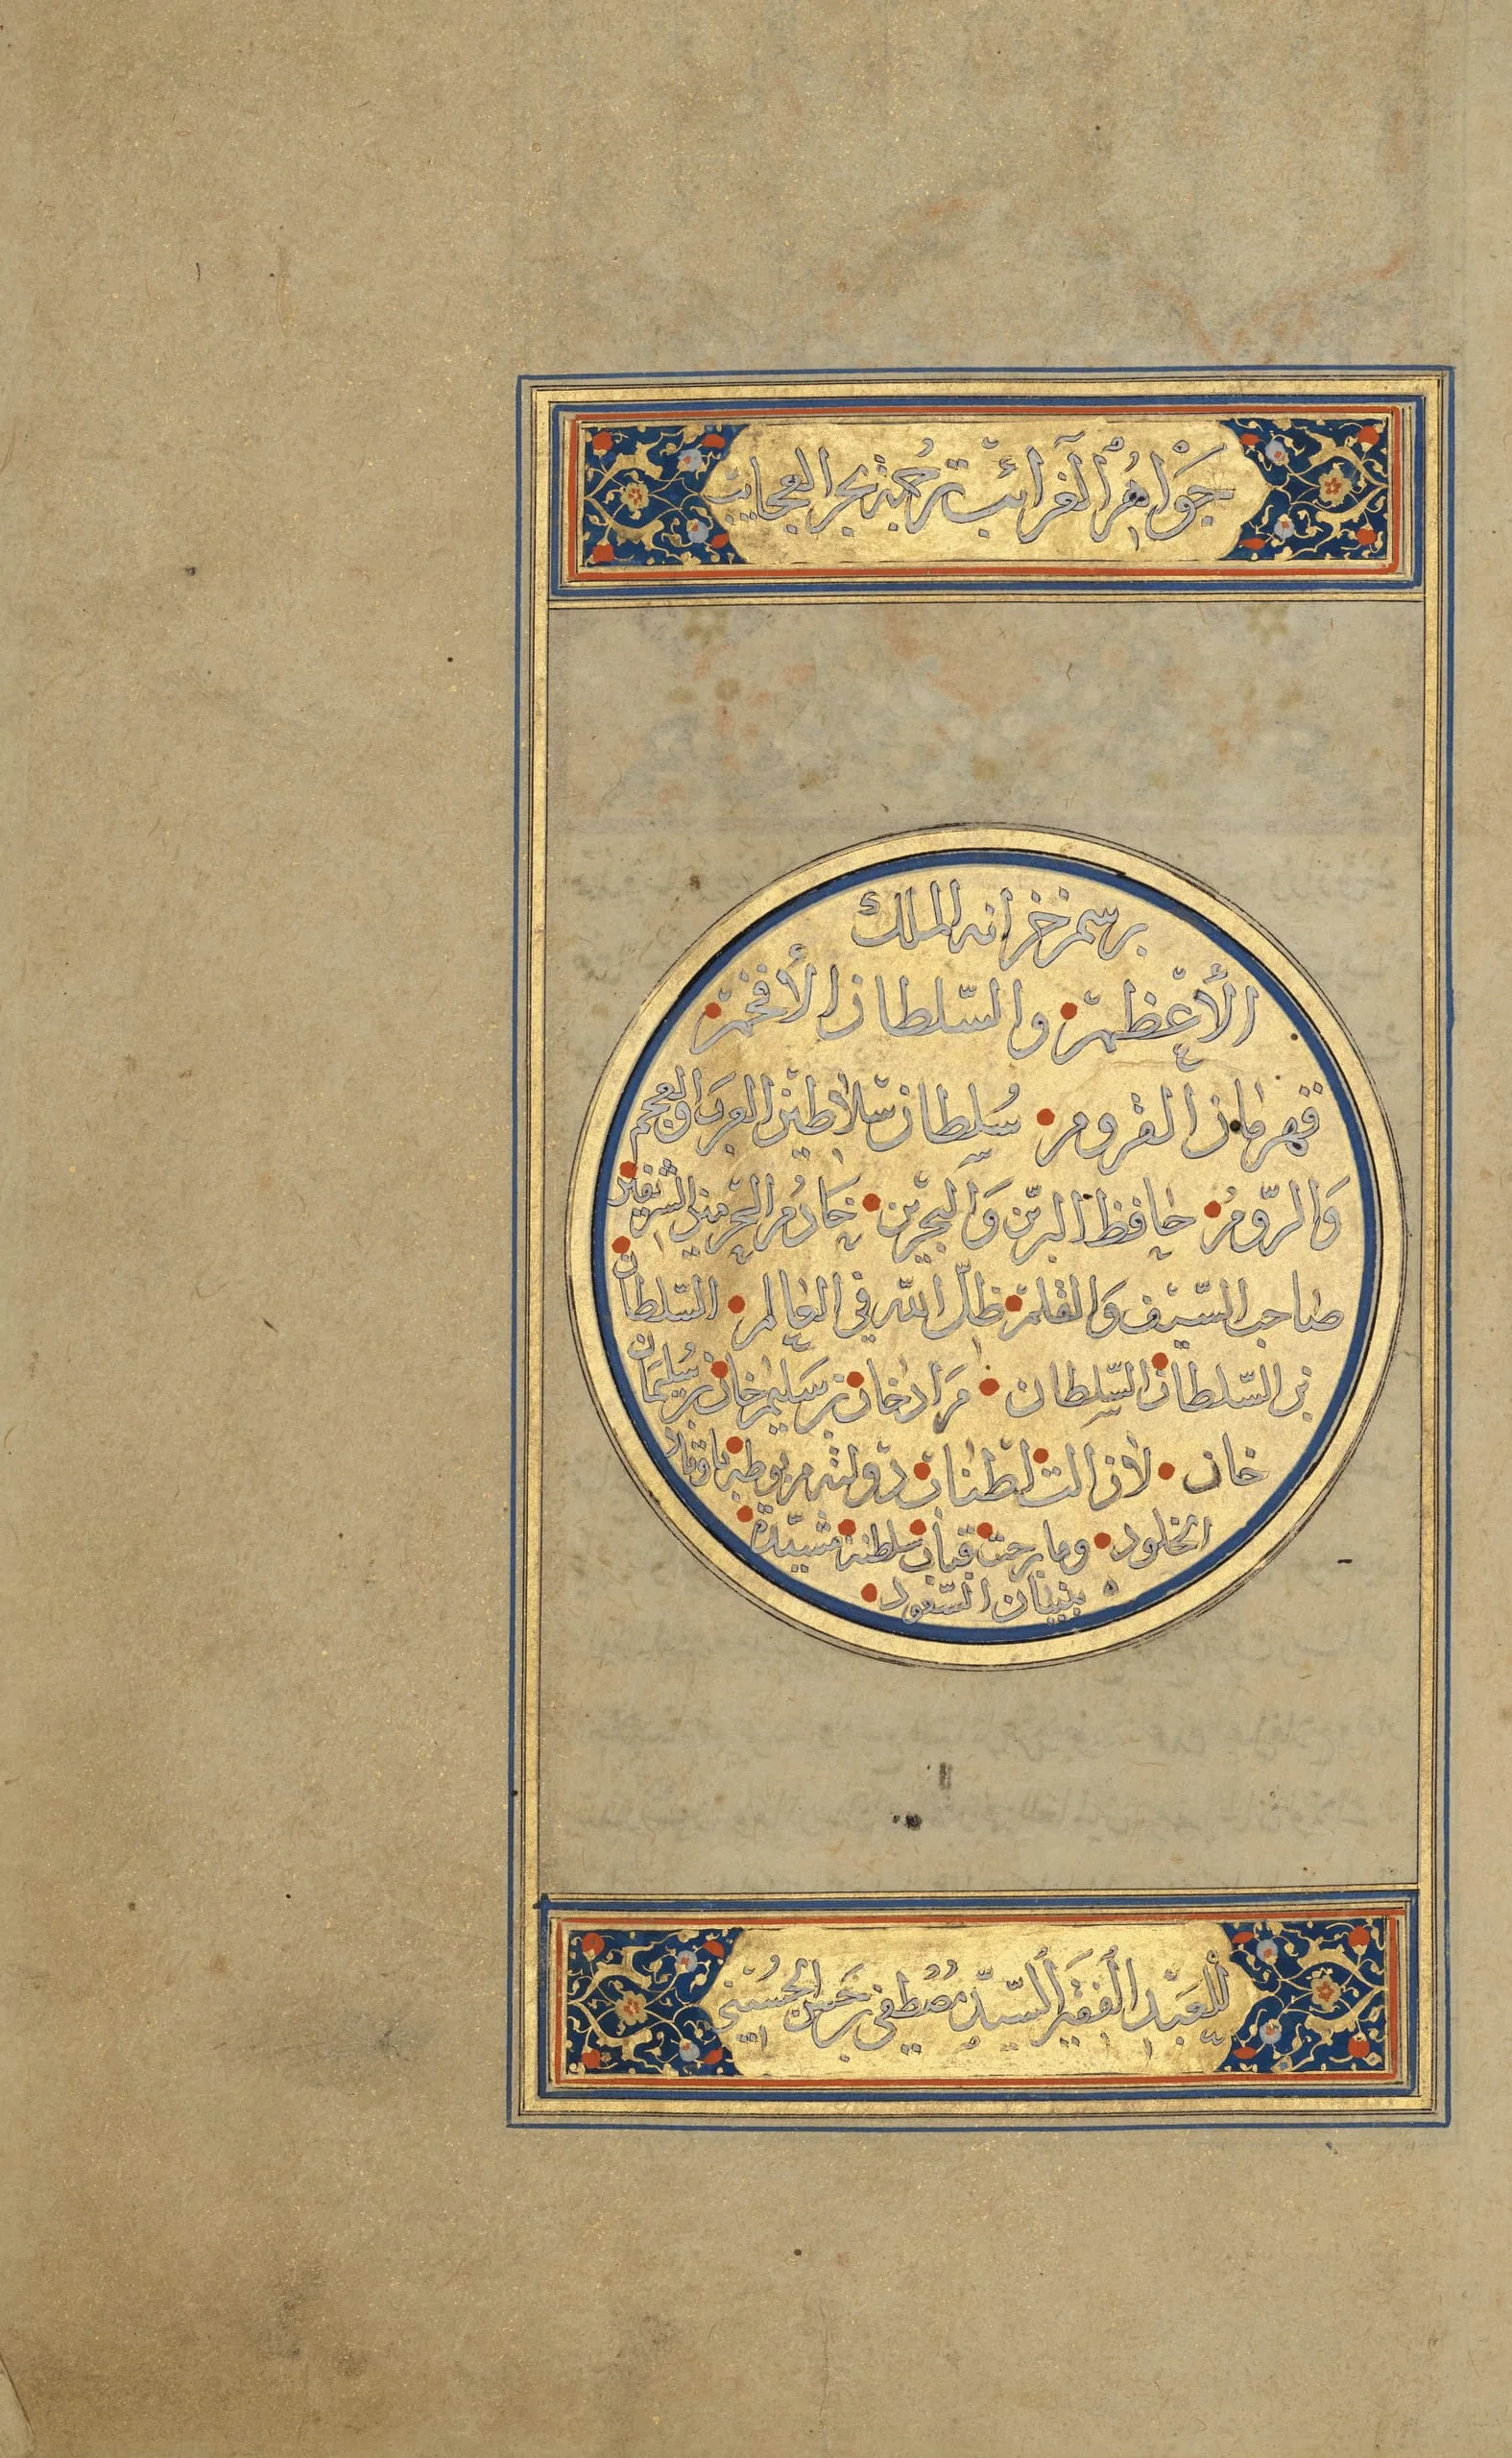 جَوَاهِرُ الْغَرَائِبْ تَرْجُمَهٔ بحر العجايب
برسم خزانه الملك
الأعْظم والسّلطان الأفخم
قهرمان القروم سُلطان سلاطين العرب والعجم
وَالرّوم حافظ البرّين وَالبحرين خادم الحرمين الشريفين
صاحب السّيف وَالقلم ظلّ الله في العالم السّلطان
بن السّلطان السّلطان مرَاد خان بن سَليم خان بن سُليمَان
خان لازالت اطناب دولته مربوطة باوتاد
الخلود وما برحت قباب سلطنته مشيّدة
ببنيان السّعود
لِلْعَبْدِ الْفَقيرِ السّيّدِ مُصْطفى بن حَسَن الحُسَيْني